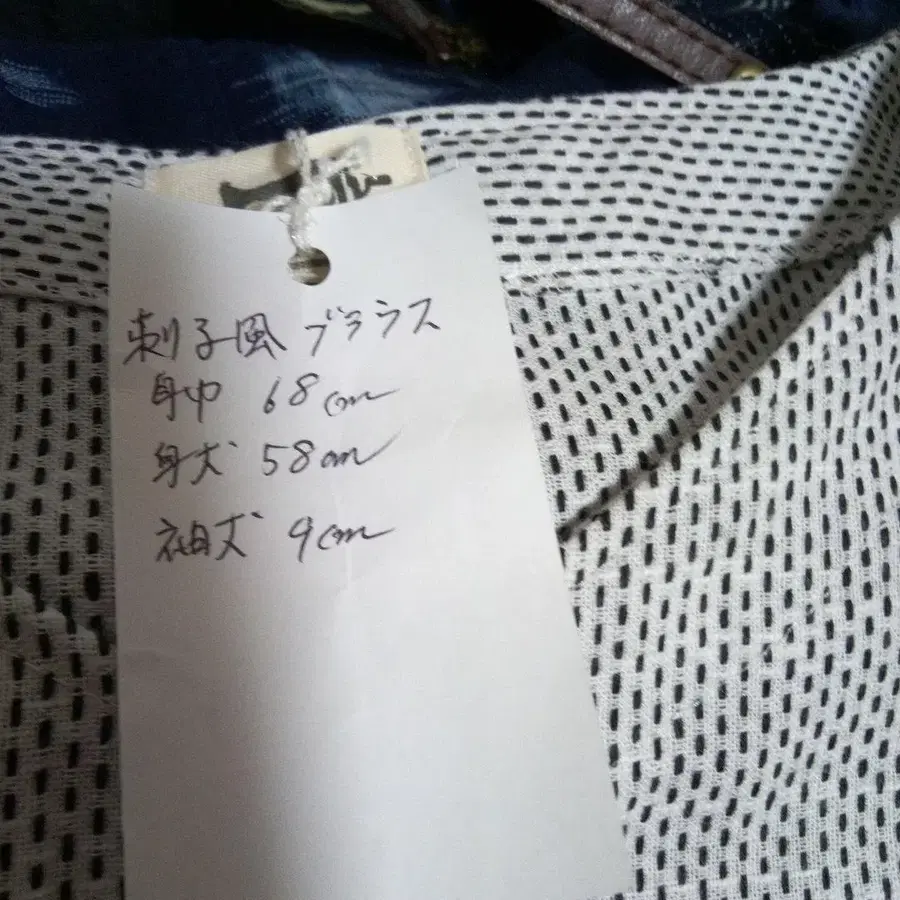 刺子風 ブラウス
身巾 68cm
身丈 58cm
袖丈 9cm